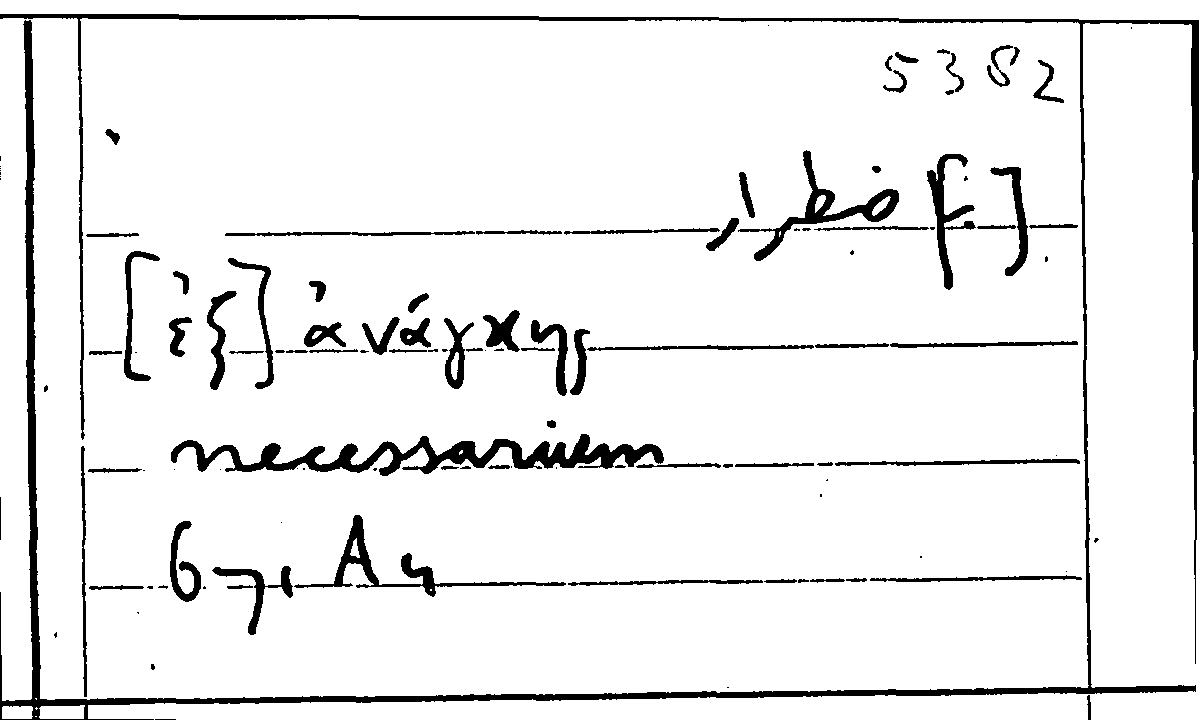 5382
[ب]اضطرار
[ἐξ] ἀνάγκης
necessarium
67, A 4